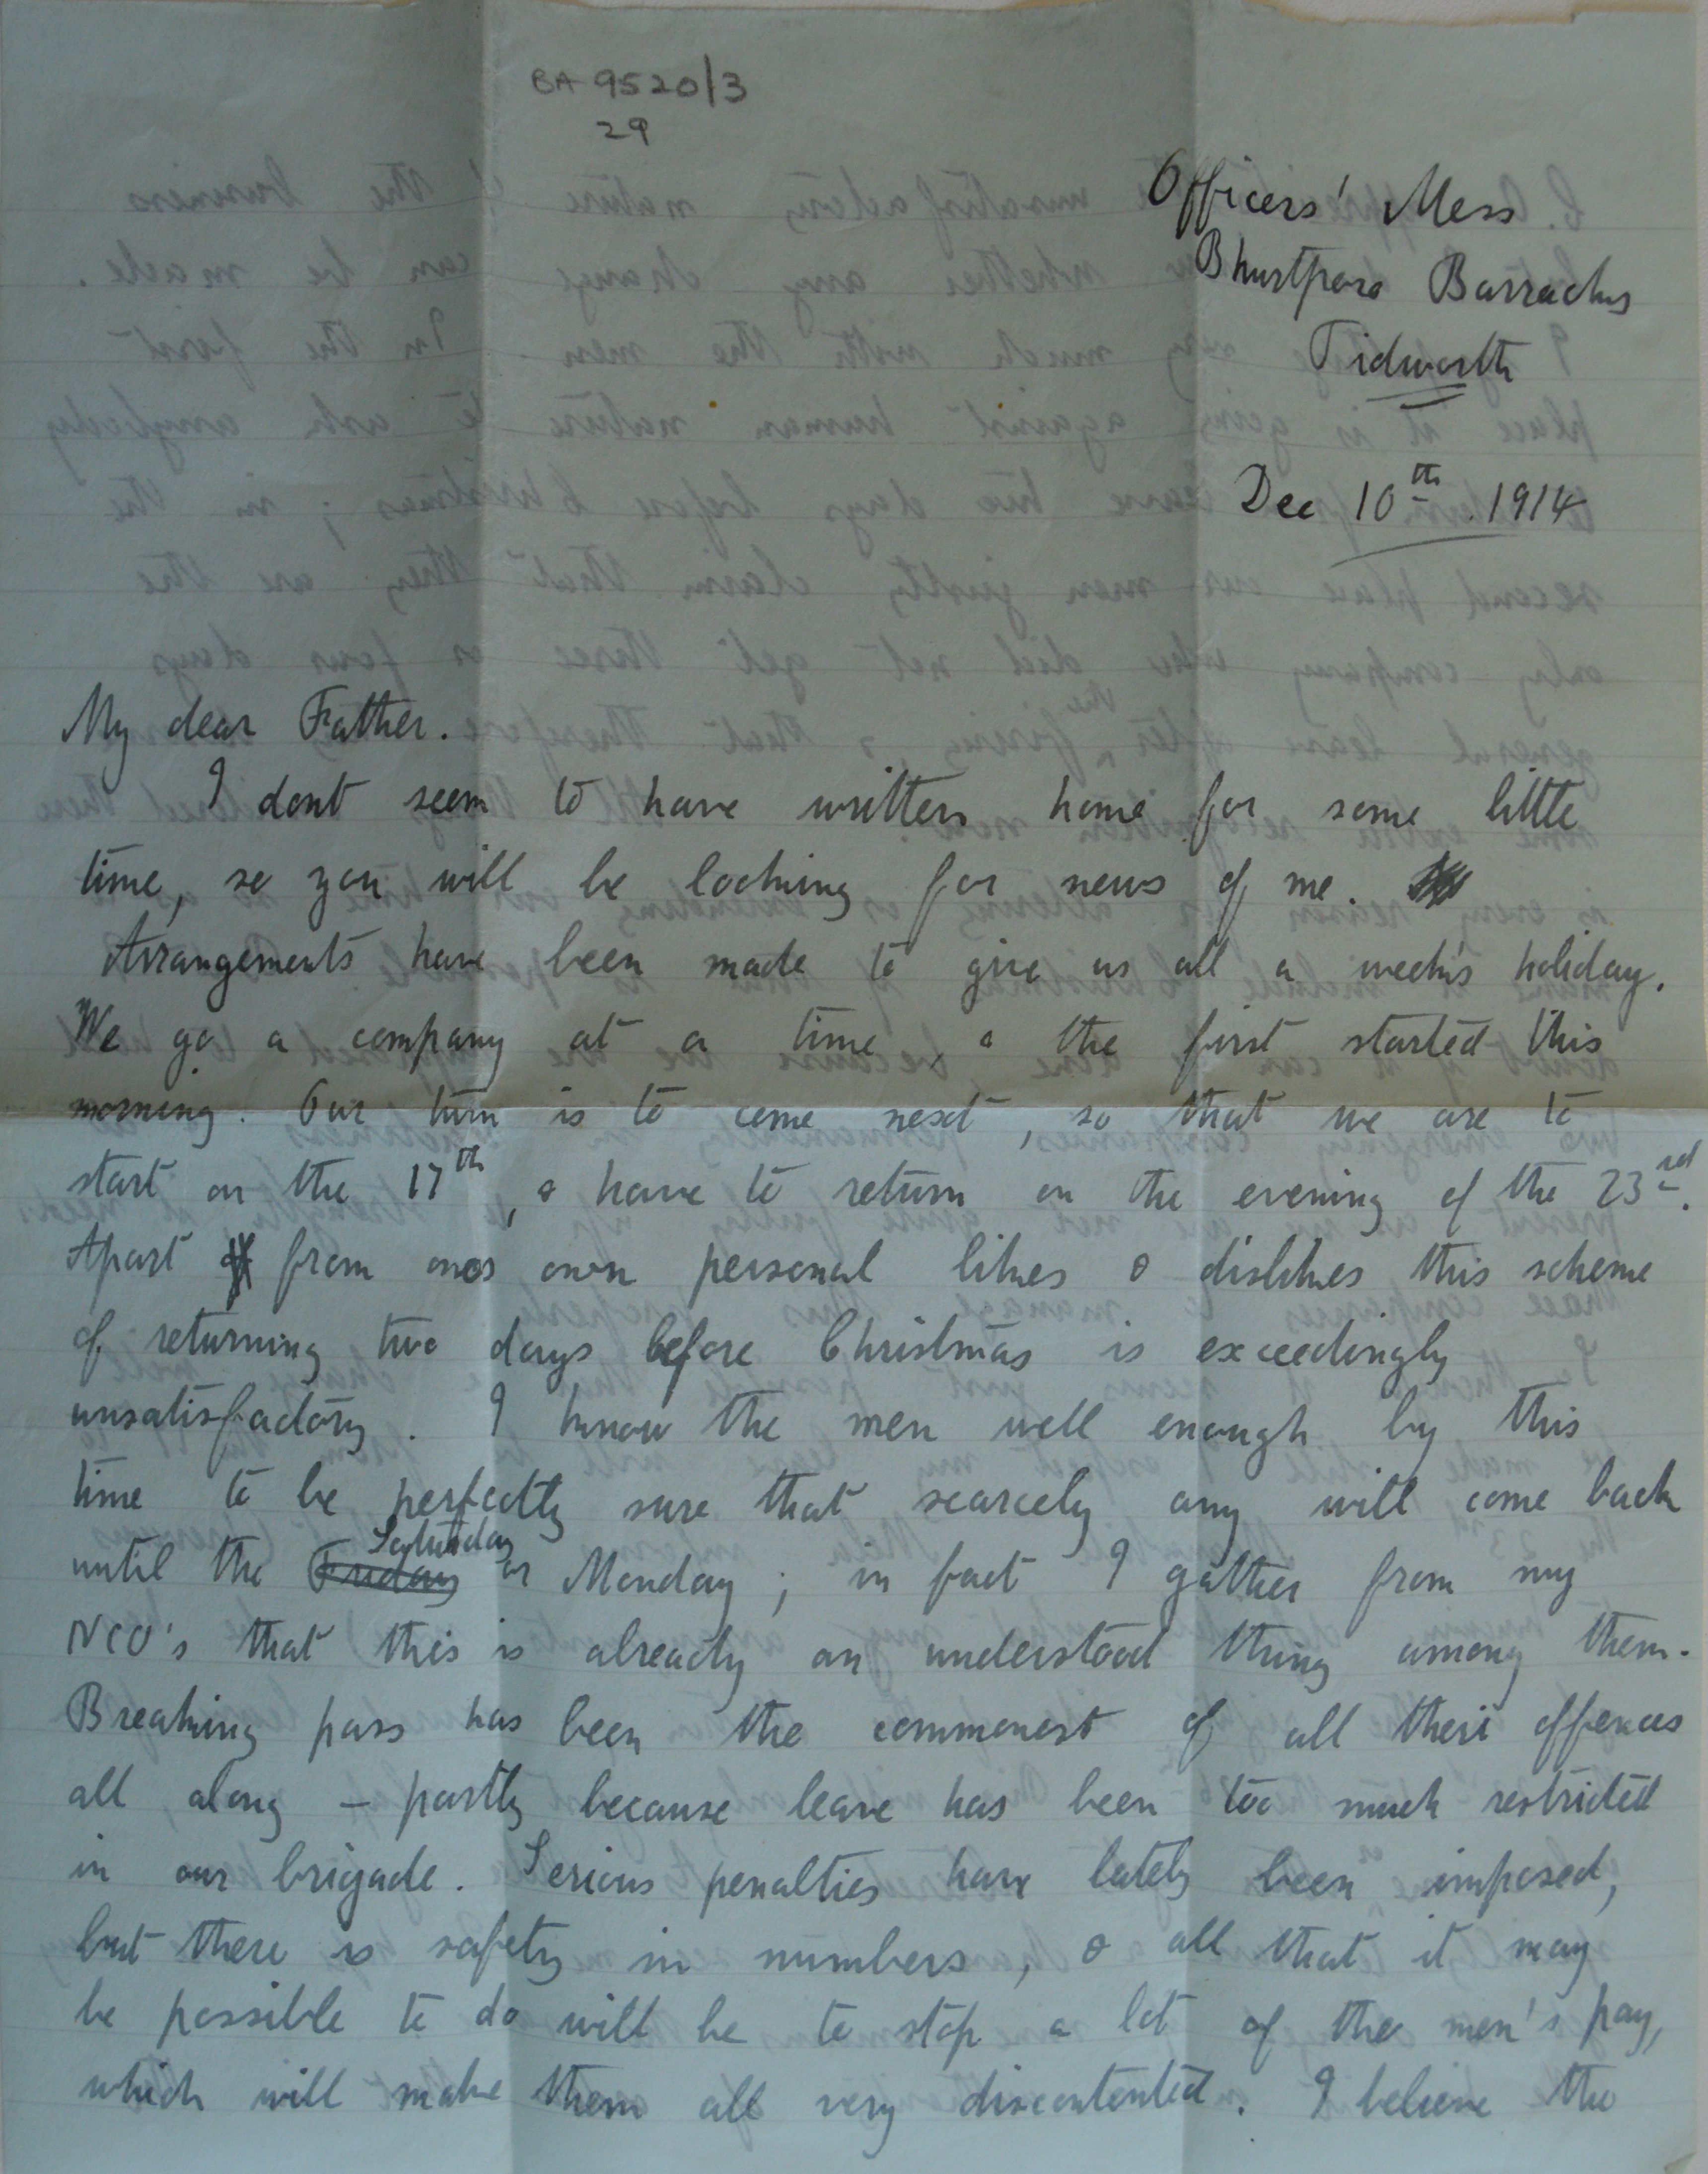 BA 9520/3
29
Officers' Mess
Bhurtpore Barracks
Tidworth
Dec 10th. 1914
My dear Father.
I dont seem to have written home for some little
time, so you will be looking for news of me.
Arrangements have been made to give us all a week's holiday.
We go a company at a time, & the first started this
morning. Our turn is to come next, so that we are to
start on the 17th, & have to return on the evening of the 23rd.
Apart from ones own personal likes & dislikes this scheme
of returning two days before Christmas is exceedingly
unsatisfactory. I know the men well enough by this
time to be perfectly sure that scarcely any will come back
until the Friday Saturday or Monday; in fact I gather from my
NCO's that this is already an understood thing among them.
Breaking pass has been the commonest of all their offences
all along – partly because leave has been too much restricted
in our brigade. Serious penalties have lately been imposed,
but there is safety in numbers, & all that it may
be possible to do will be to stop a lot of the men's pay,
which will make them all very discontented. I believe the